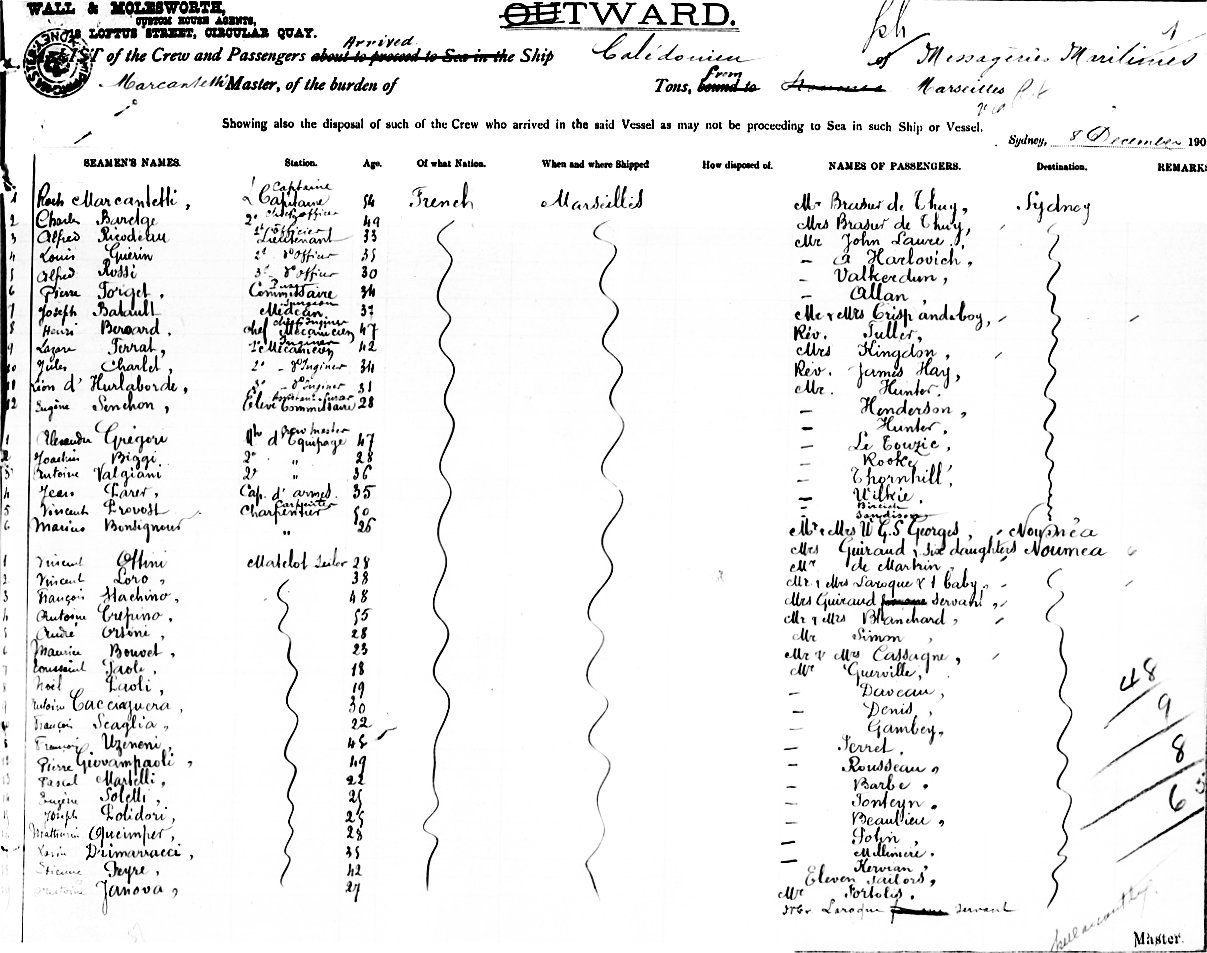 WALL & MOLESWORTH,
CUSTOM HOUSE AGENTS,
LOFTUS STREET, CIRCULAR QUAY.
OUTWARD.
Arrived
of the Crew and Passengers about to proceed to Sea in the Ship Calédonien of Messageries Maritimes
Marcantetti Master, of the burden of Tons, from bound to Noumea Marseilles
Showing also the disposal of such of the Crew who arrived in the said Vessel as may not be proceeding to Sea in such Ship or Vessel.
Sydney, 8 December 190
SEAMEN'S NAMES. Station. Age. Of what Nation. When and where Shipped How disposed of. NAMES OF PASSENGERS. Destination. REMARKS
1 Roch Marcantetti, Captaine Capitaine 54 French Marseilles Mr Brasier de Thuy, Sydney
2 Charles Barelge 2d Chief officer 49 Mrs Brasier de Thuy,
3 Alfred Ricodeau 1st Officier Lieutenant 33 Mr John Laure,
4 Louis Guérin 2d dº Officer 35 – a Harlovich,
5 Alfred Rossi 3d dº Officer 30 – Valkerdun,
6 Pierre Forget, Purser Commissaire 34 – Allan,
7 Joseph Batault Surgeon Médecin 37 Mr & Mrs Crisp and boy,
8 Henri Beroard, chief Enginer chef Mécanicien 47 Rév. Fuller,
9 Lazare Ferrat, Enginer 1e Mécanicien 42 Mrs Kingdon,
10 Jules Charlet, 2º – dº Enginer 34 Rev. James Hay,
11 Léon d'Hurlaborde, 3º – dº Enginer 31 Mr. Hunter,
12 Eugène Senchon, Assistant Purser Eleve Commissaire 28 – Henderson,
– Hunter,
1 Alexandre Grégori Crew master d'Equipage 47 – Le Touzic,
2 Joachim Biggi 2º " 28 – Rooke,
3 Antoine Valgiani 2º " 36 – Thornhill,
4 Jean Larer, Cap. d'armes. 35 – Wilkie,
5 Vincent Provost Carpenter Charpentier 50
6 Marius Bonsignour " 26 Mr & Mrs W G.S Georges, Nouméa
Mrs Guiraud & six daughters Noumea
1 Vincent Ottini Matelot Sailor 28 Mr de Martrin,
2 Vincent Loro, 38 Mr & Mrs Laroque & 1 baby,
3 François Stachino, 48 Mrs Guiraud servant,
4 Antoine Crepino, 55 Mr & Mrs Blanchard,
5 André Orsoni, 28 Mr Simon,
6 Maurice Bouvet, 23 Mr & Mrs Cassagne,
7 Toussaint Paoli, 18 Mr Guerville,
8 Noël Paoli, 19 – Daveau,
9 Antoine Cacciaguera, 30 – Denis,
François Scaglia, 22 – Gambey,
François Uzeneni, 45 – Perret,
12 Pierre Giovampaoli, 49 – Rousseau,
13 Pascal Martelli, 22 – Barbe.
14 Eugène Poletti, 25 – Fonteyn.
15 Joseph Polidori, 25 – Beaulieu,
Mathurin Queimper, 28 – John,
Drimaracci, 35 – Millinière.
Etienne Peyre, 42 – Hervian,
Antoine Janova, 27 Eleven Sailors,
Mr Portolis.
Laroque servant
48
9
8
65
Master.